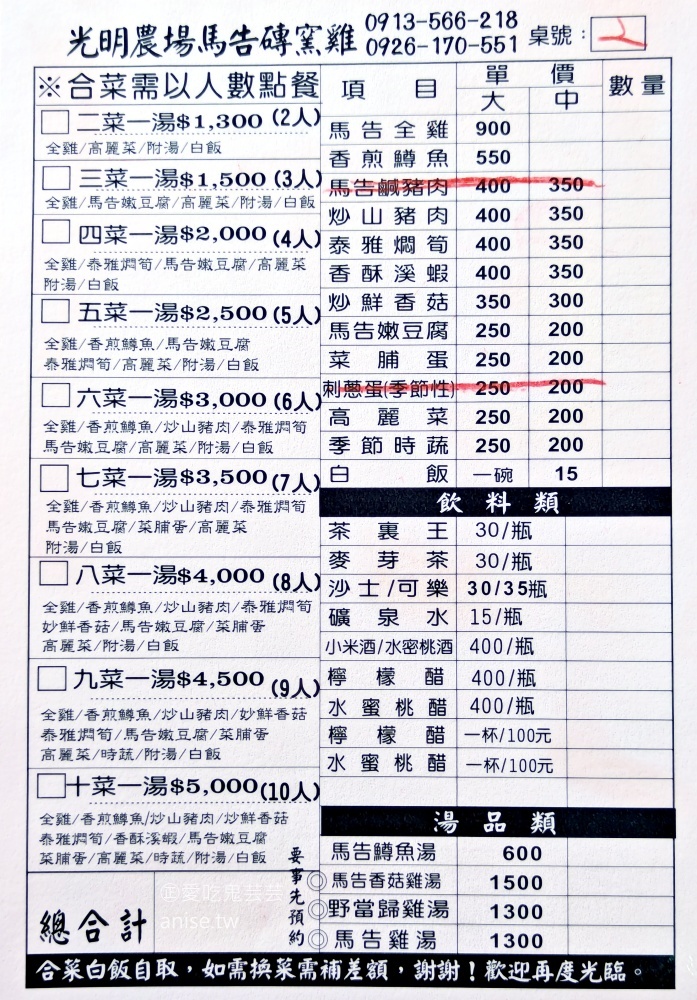 光明農場馬告磚窯雞 0913-566-218
0926-170-551 桌號：2
※合菜需以人數點餐
二菜一湯$1,300 (2人)
全雞/高麗菜/附湯/白飯
三菜一湯$1,500 (3人)
全雞/馬告嫩豆腐/高麗菜/附湯/白飯
四菜一湯$2,000 (4人)
全雞/泰雅燜筍/馬告嫩豆腐/高麗菜
附湯/白飯
五菜一湯$2,500 (5人)
全雞/香煎鱒魚/馬告嫩豆腐
泰雅燜筍/高麗菜/附湯/白飯
六菜一湯$3,000 (6人)
全雞/香煎鱒魚/炒山豬肉/泰雅燜筍
馬告嫩豆腐/高麗菜/附湯/白飯
七菜一湯$3,500 (7人)
全雞/香煎鱒魚/炒山豬肉/泰雅燜筍
馬告嫩豆腐/菜脯蛋/高麗菜
附湯/白飯
八菜一湯$4,000 (8人)
全雞/香煎鱒魚/炒山豬肉/泰雅燜筍
妙鮮香菇/馬告嫩豆腐/菜脯蛋
高麗菜/附湯/白飯
九菜一湯$4,500 (9人)
全雞/香煎鱒魚/炒山豬肉/妙鮮香菇
泰雅燜筍/馬告嫩豆腐/菜脯蛋
高麗菜/時蔬/附湯/白飯
十菜一湯$5,000 (10人)
全雞/香煎鱒魚/炒山豬肉/炒鮮香菇
泰雅燜筍/香酥溪蝦/馬告嫩豆腐
菜脯蛋/高麗菜/時蔬/附湯/白飯
總合計
項目 單價 數量
大 中
馬告全雞 900
香煎鱒魚 550
馬告鹹豬肉 400 350
炒山豬肉 400 350
泰雅燜筍 400 350
香酥溪蝦 400 350
炒鮮香菇 350 300
馬告嫩豆腐 250 200
菜脯蛋 250 200
刺蔥蛋(季節性) 250 200
高麗菜 250 200
季節時蔬 250 200
白飯 一碗 15
飲料類
茶裏王 30/瓶
麥芽茶 30/瓶
沙士/可樂 30/35瓶
礦泉水 15/瓶
小米酒/水密桃酒 400/瓶
檸檬醋 400/瓶
水蜜桃醋 400/瓶
檸檬醋 一杯/100元
水蜜桃醋 一杯/100元
湯品類
馬告鱒魚湯 600
要事先預約
◎馬告香菇雞湯 1500
◎野當歸雞湯 1300
◎馬告雞湯 1300
合菜白飯自取，如需換菜需補差額，謝謝！歡迎再度光臨。
@愛吃鬼芸芸
anise.tw